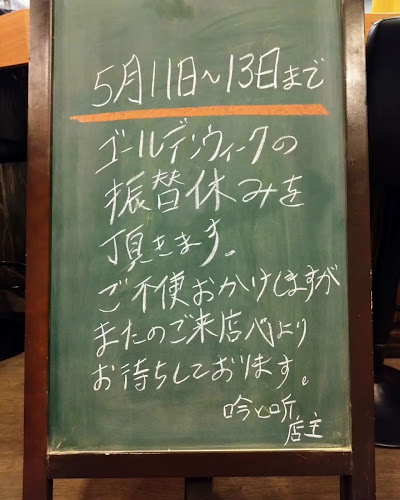 5月11日〜13日まで
ゴールデンウィークの
振替休みを
頂きます。
ご不便おかけしますが
またのご来店心より
お待ちしております。
店主